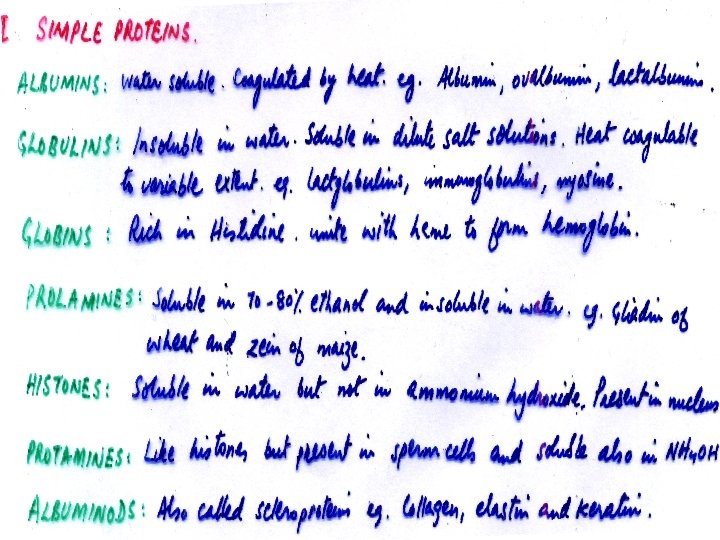 I SIMPLE PROTEINS.
ALBUMINS: Water soluble. Coagulated by heat. eg. Albumin, ovalbumin, lactalbumins.
GLOBULINS: Insoluble in water. Soluble in dilute salt solutions. Heat coagulable
to variable extent. eg. lactglobulins, immunoglobulins, myosine.
GLOBINS: Rich in Histidine. unite with heme to form hemoglobin.
PROLAMINES: Soluble in 70-80% ethanol and insoluble in water. eg. Gliadin of
wheat and zein of maize.
HISTONES: Soluble in water but not in ammonium hydroxide. Present in nucleus
PROTAMINES: Like histones but present in sperm cells and soluble also in NH4OH
ALBUMINODS: Also called scleroproteins eg. Collagen, elastin and keratin.